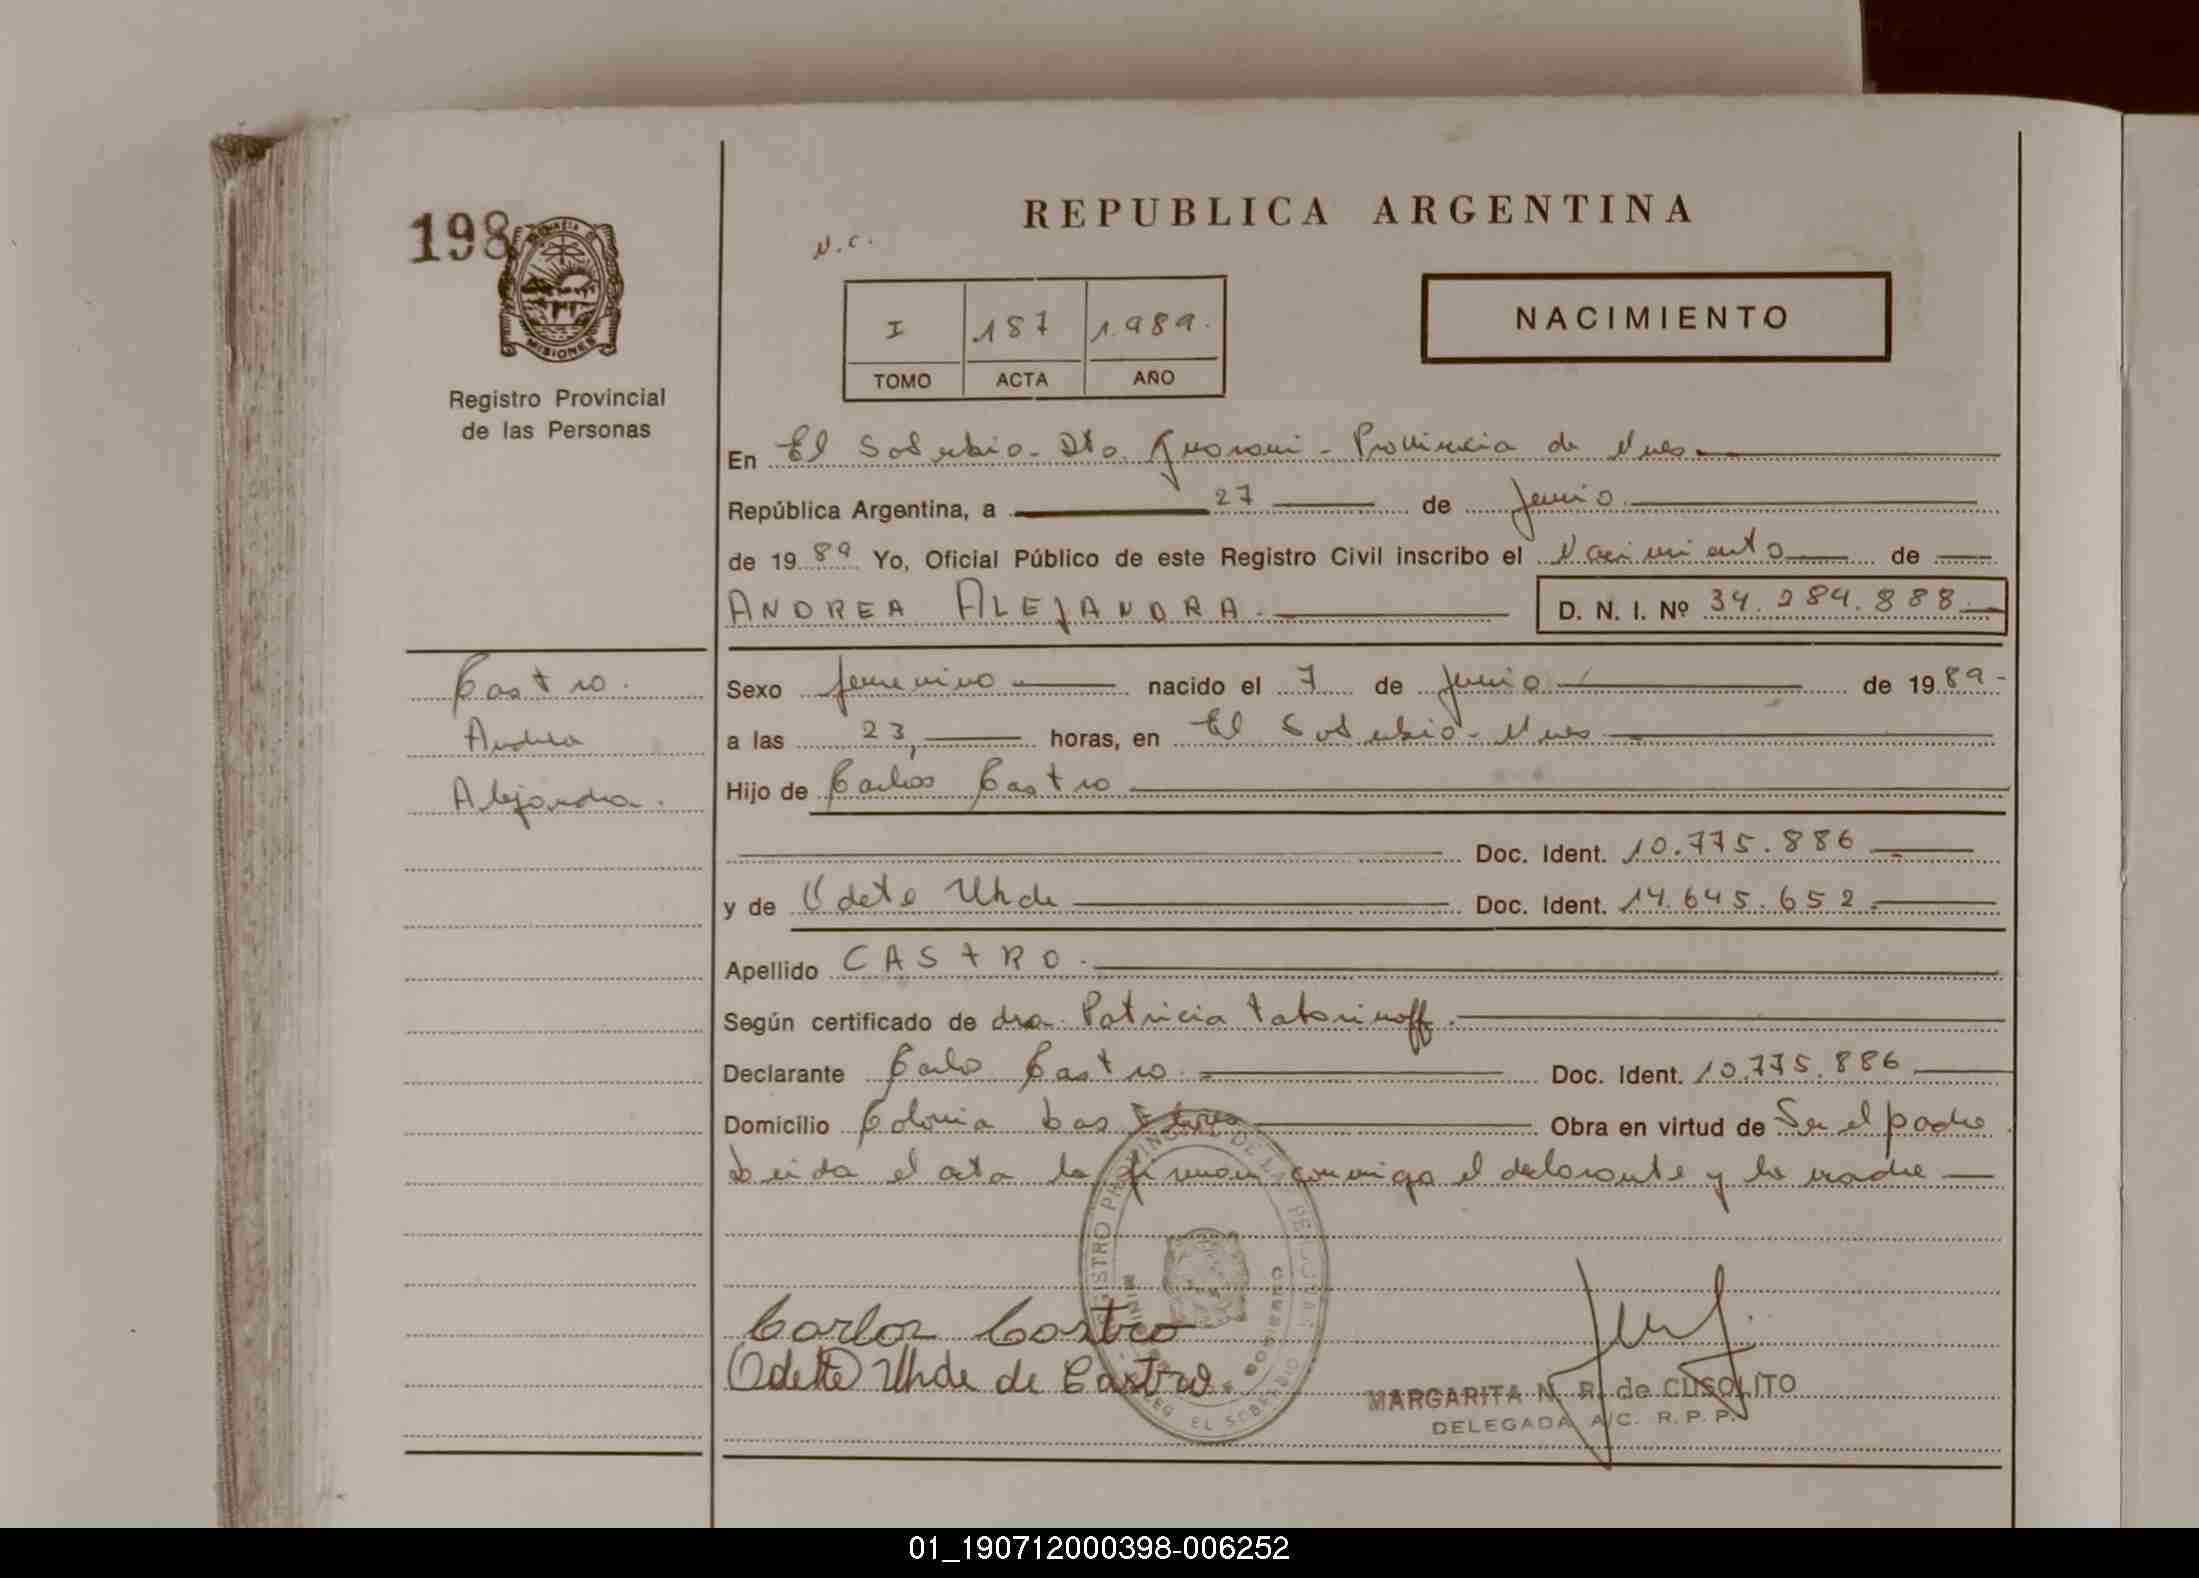 198
REPUBLICA ARGENTINA
N.C.
MISIONES
I 187 1.989.
TOMO ACTA AÑO
NACIMIENTO
Registro Provincial
de las Personas
En El Soberbio - Dto. Guarani - Provincia de Mnes
República Argentina, a 27 de Junio
de 1989 Yo, Oficial Público de este Registro Civil inscribo el Nacimiento de
ANDREA ALEJANDRA. D. N. I. Nº 34.284.888
Castro.
Andrea
Alejandra.
Sexo femenino nacido el 7 de Junio de 1989-
a las 23, horas, en El Soberbio - Mnes
Hijo de Carlos Castro
Doc. Ident. 10.775.886
y de Odete Uhde Doc. Ident. 14.645.652
Apellido CASTRO.
Según certificado de dra. Patricia
Declarante Carlos Castro Doc. Ident. 10.775.886
Domicilio Colonia Obra en virtud de Ser el padre.
Leida el acta la firman conmigo el declarante y la madre
REGISTRO PROVINCIAL DE LAS PERSONAS
MINISTERIO DE GOBIERNO
DELEG. EL SOBERBIO
Carlos Castro
Odette Uhde de Castro
MARGARITA N. R. de CUSOLITO
DELEGADA A/C. R. P. P.
01_190712000398-006252